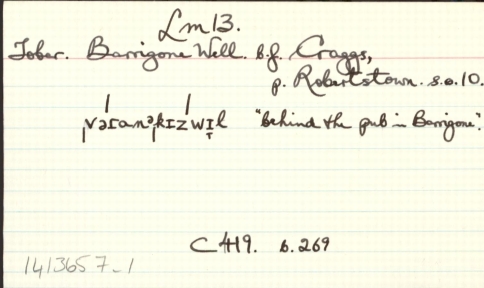 Lm13.
Tober. Barrigone Well. b.f. Craggs,
p. Robertstown. s.o.10.
ˌvəranˈəkɪz wɪl "behind the pub in Barrigone".
C 419. b. 269
1413657-1